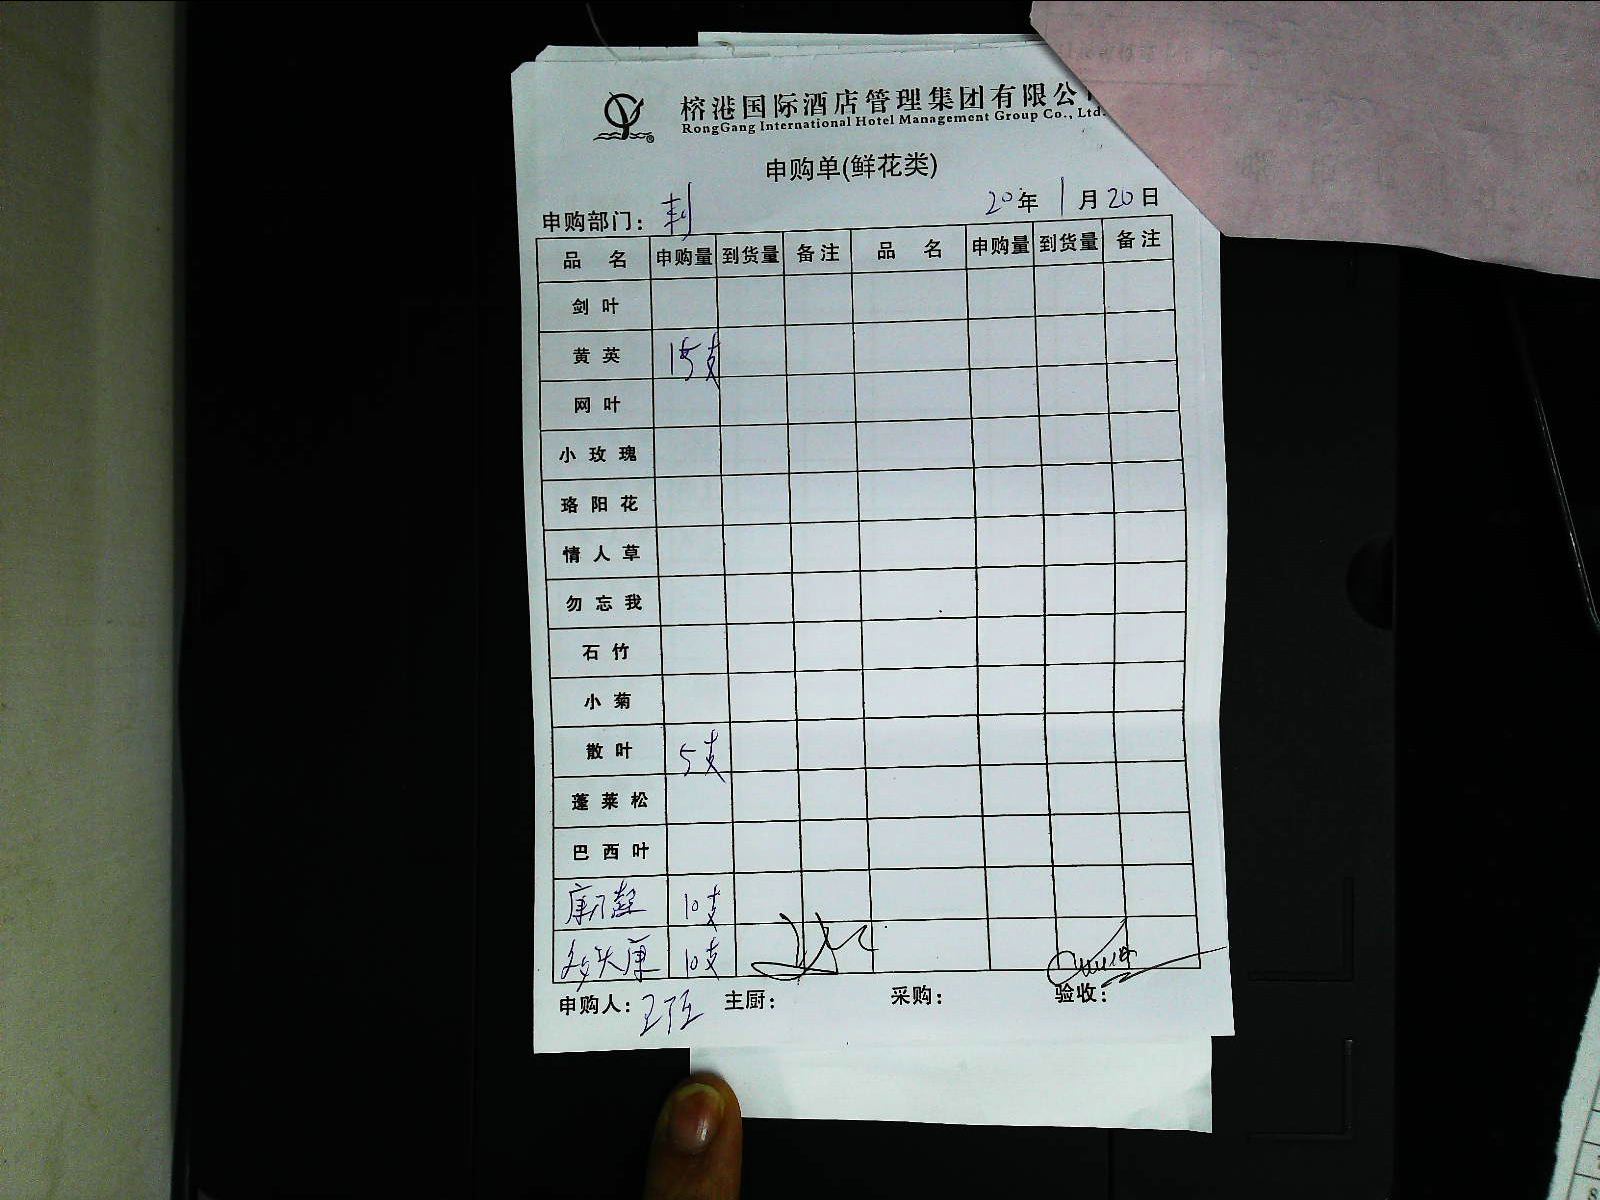 榕港国际酒店管理集团有限公
RongGang International Hotel Management Group Co., Ltd.
申购单(鲜花类)
申购部门： 20年 1月20日
品名 申购量 到货量 备注 品名 申购量 到货量 备注
剑叶
黄英 15支
网叶
小玫瑰
珞阳花
情人草
勿忘我
石竹
小菊
散叶 5支
蓬莱松
巴西叶
10支
康 10支
申购人： 主厨： 采购： 验收：